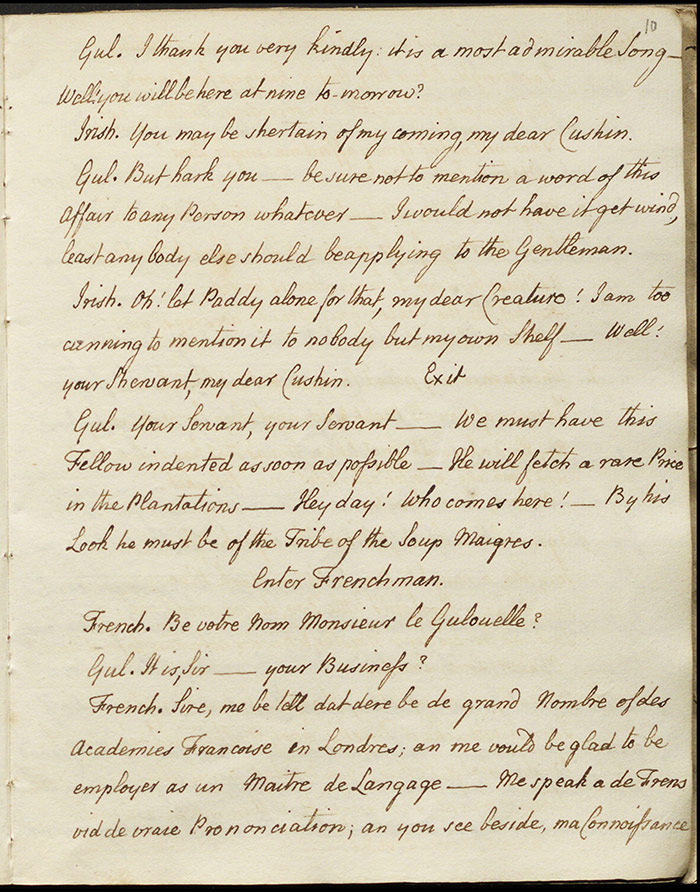 10
Gul. I thank you very kindly: it is a most admirable Song —
Well! you will be here at nine to-morrow?
Irish. You may be shertain of my coming, my dear Cushin.
Gul. But hark you — be sure not to mention a word of this
Affair to any Person whatever — I would not have it get wind,
least any body else should be applying to the Gentleman.
Irish. Oh! let Paddy alone for that, my dear Creature! I am too
cunning to mention it to nobody but my own Shelf — Well!
your Shervant, my dear Cushin. Exit
Gul. Your Servant, your Servant — We must have this
Fellow indented as soon as possible — He will fetch a rare Price
in the Plantations — Hey day! Who comes here! — By his
Look he must be of the Tribe of the Soup Maigres.
Enter Frenchman.
French. Be votre Nom Monsieur le Gulouelle?
Gul. It is, Sir — your Business?
French. Sire, me be tell dat dere be de grand Nombre of des
Academies Francoise in Londres; an me would be glad to be
employer as un Maitre de Langage — Me speak a de Frens
vid de vraie Prononciation; an you see beside, ma Connoissance